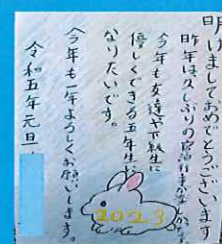 明けましておめでとうございます
昨年は久しぶりの宿泊
今年も友達や下級生に
優しくできる五年生に
なりたいです。
今年も一年よろしくお願いします。
令和五年元旦
2023